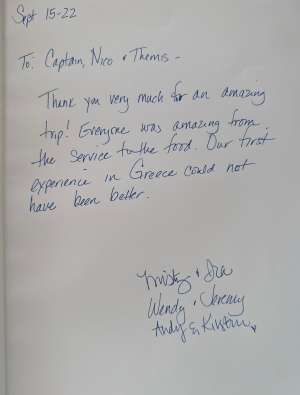 Sept 15-22
To: Captain, Nico + Themis -
Thank you very much for an amazing
trip! Everyone was amazing from
the service to the food. Our first
experience in Greece could not
have been better.
+
Wendy + Jeremy
Andy &